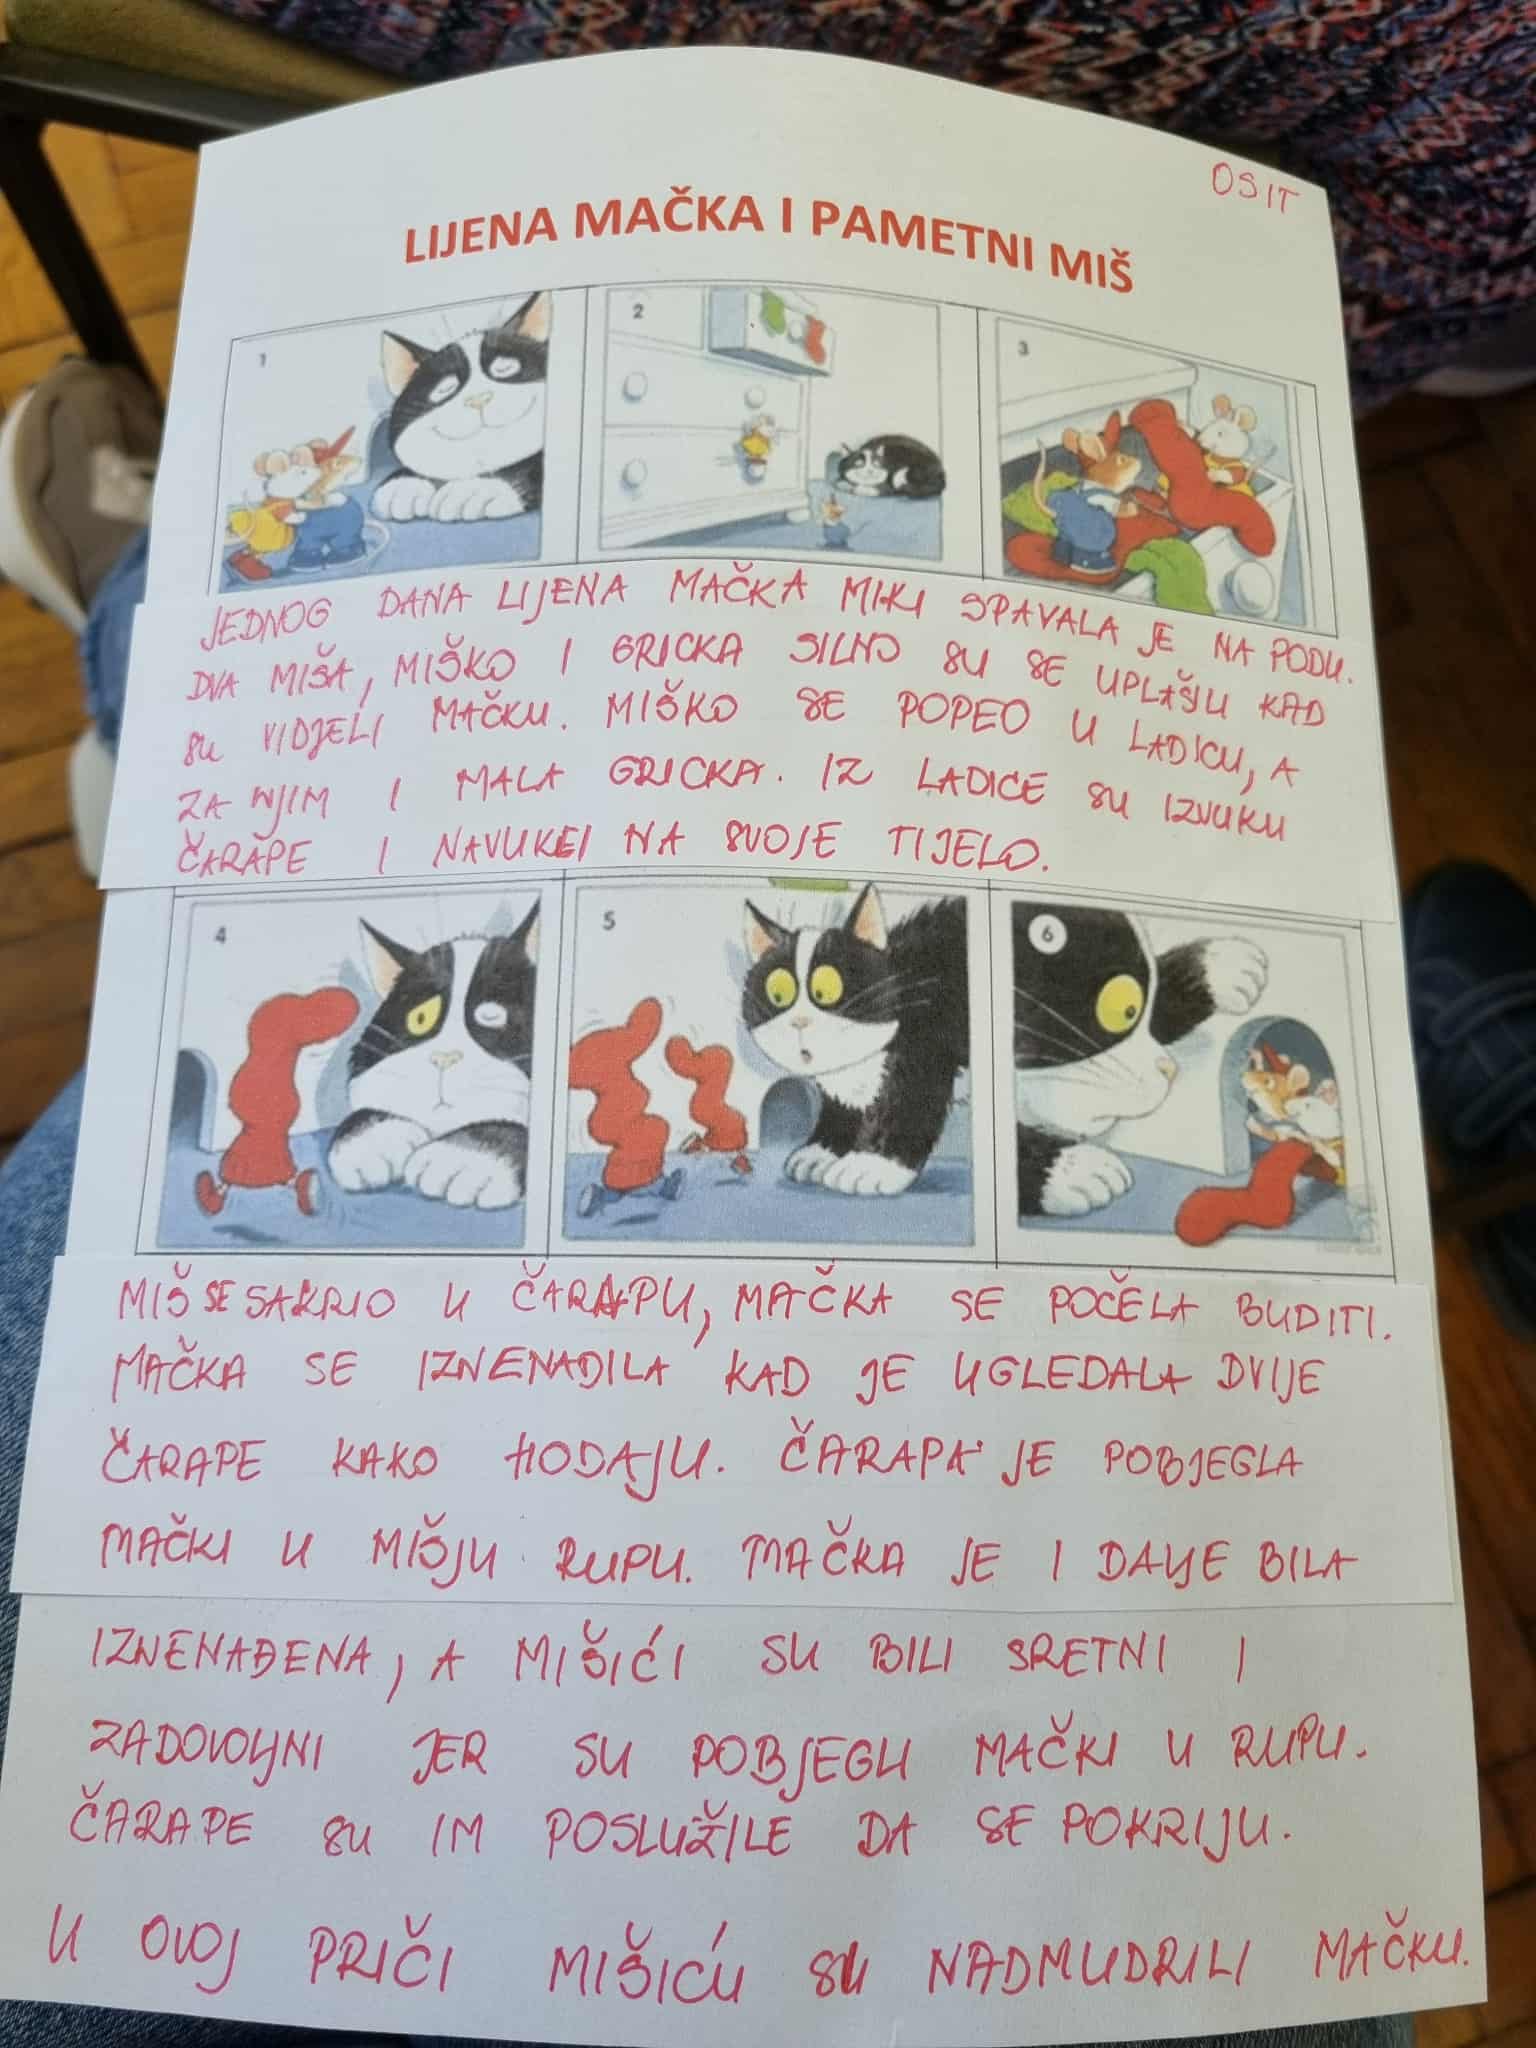 OSIT
LIJENA MAČKA I PAMETNI MIŠ
1
2
3
JEDNOG DANA LIJENA MAČKA MIKI SPAVALA JE NA PODU.
DVA MIŠA, MIŠKO I GRICKA SILNO SU SE UPLAŠILI KAD
SU VIDJELI MAČKU. MIŠKO SE POPEO U LADICU, A
ZA NJIM I MALA GRICKA. IZ LADICE SU IZVUKLI
ČARAPE I NAVUKLI NA SVOJE TIJELO.
4
5
6
MIŠ SE SAKRIO U ČARAPU, MAČKA SE POČELA BUDITI.
MAČKA SE IZNENADILA KAD JE UGLEDALA DVIJE
ČARAPE KAKO HODAJU. ČARAPA JE POBJEGLA
MAČKI U MIŠJU RUPU. MAČKA JE I DALJE BILA
IZNENAĐENA, A MIŠIĆI SU BILI SRETNI I
ZADOVOLJNI JER SU POBJEGLI MAČKI U RUPU.
ČARAPE SU IM POSLUŽILE DA SE POKRIJU.
U OVOJ PRIČI MIŠIĆU SU NADMUDRILI MAČKU.